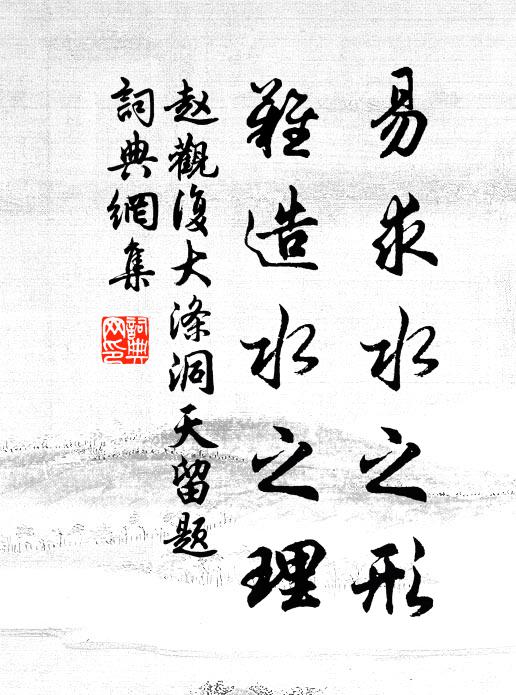 易求水之形
難造水之理
赵觀復大滌洞天留题
詞典網集
詞典网印